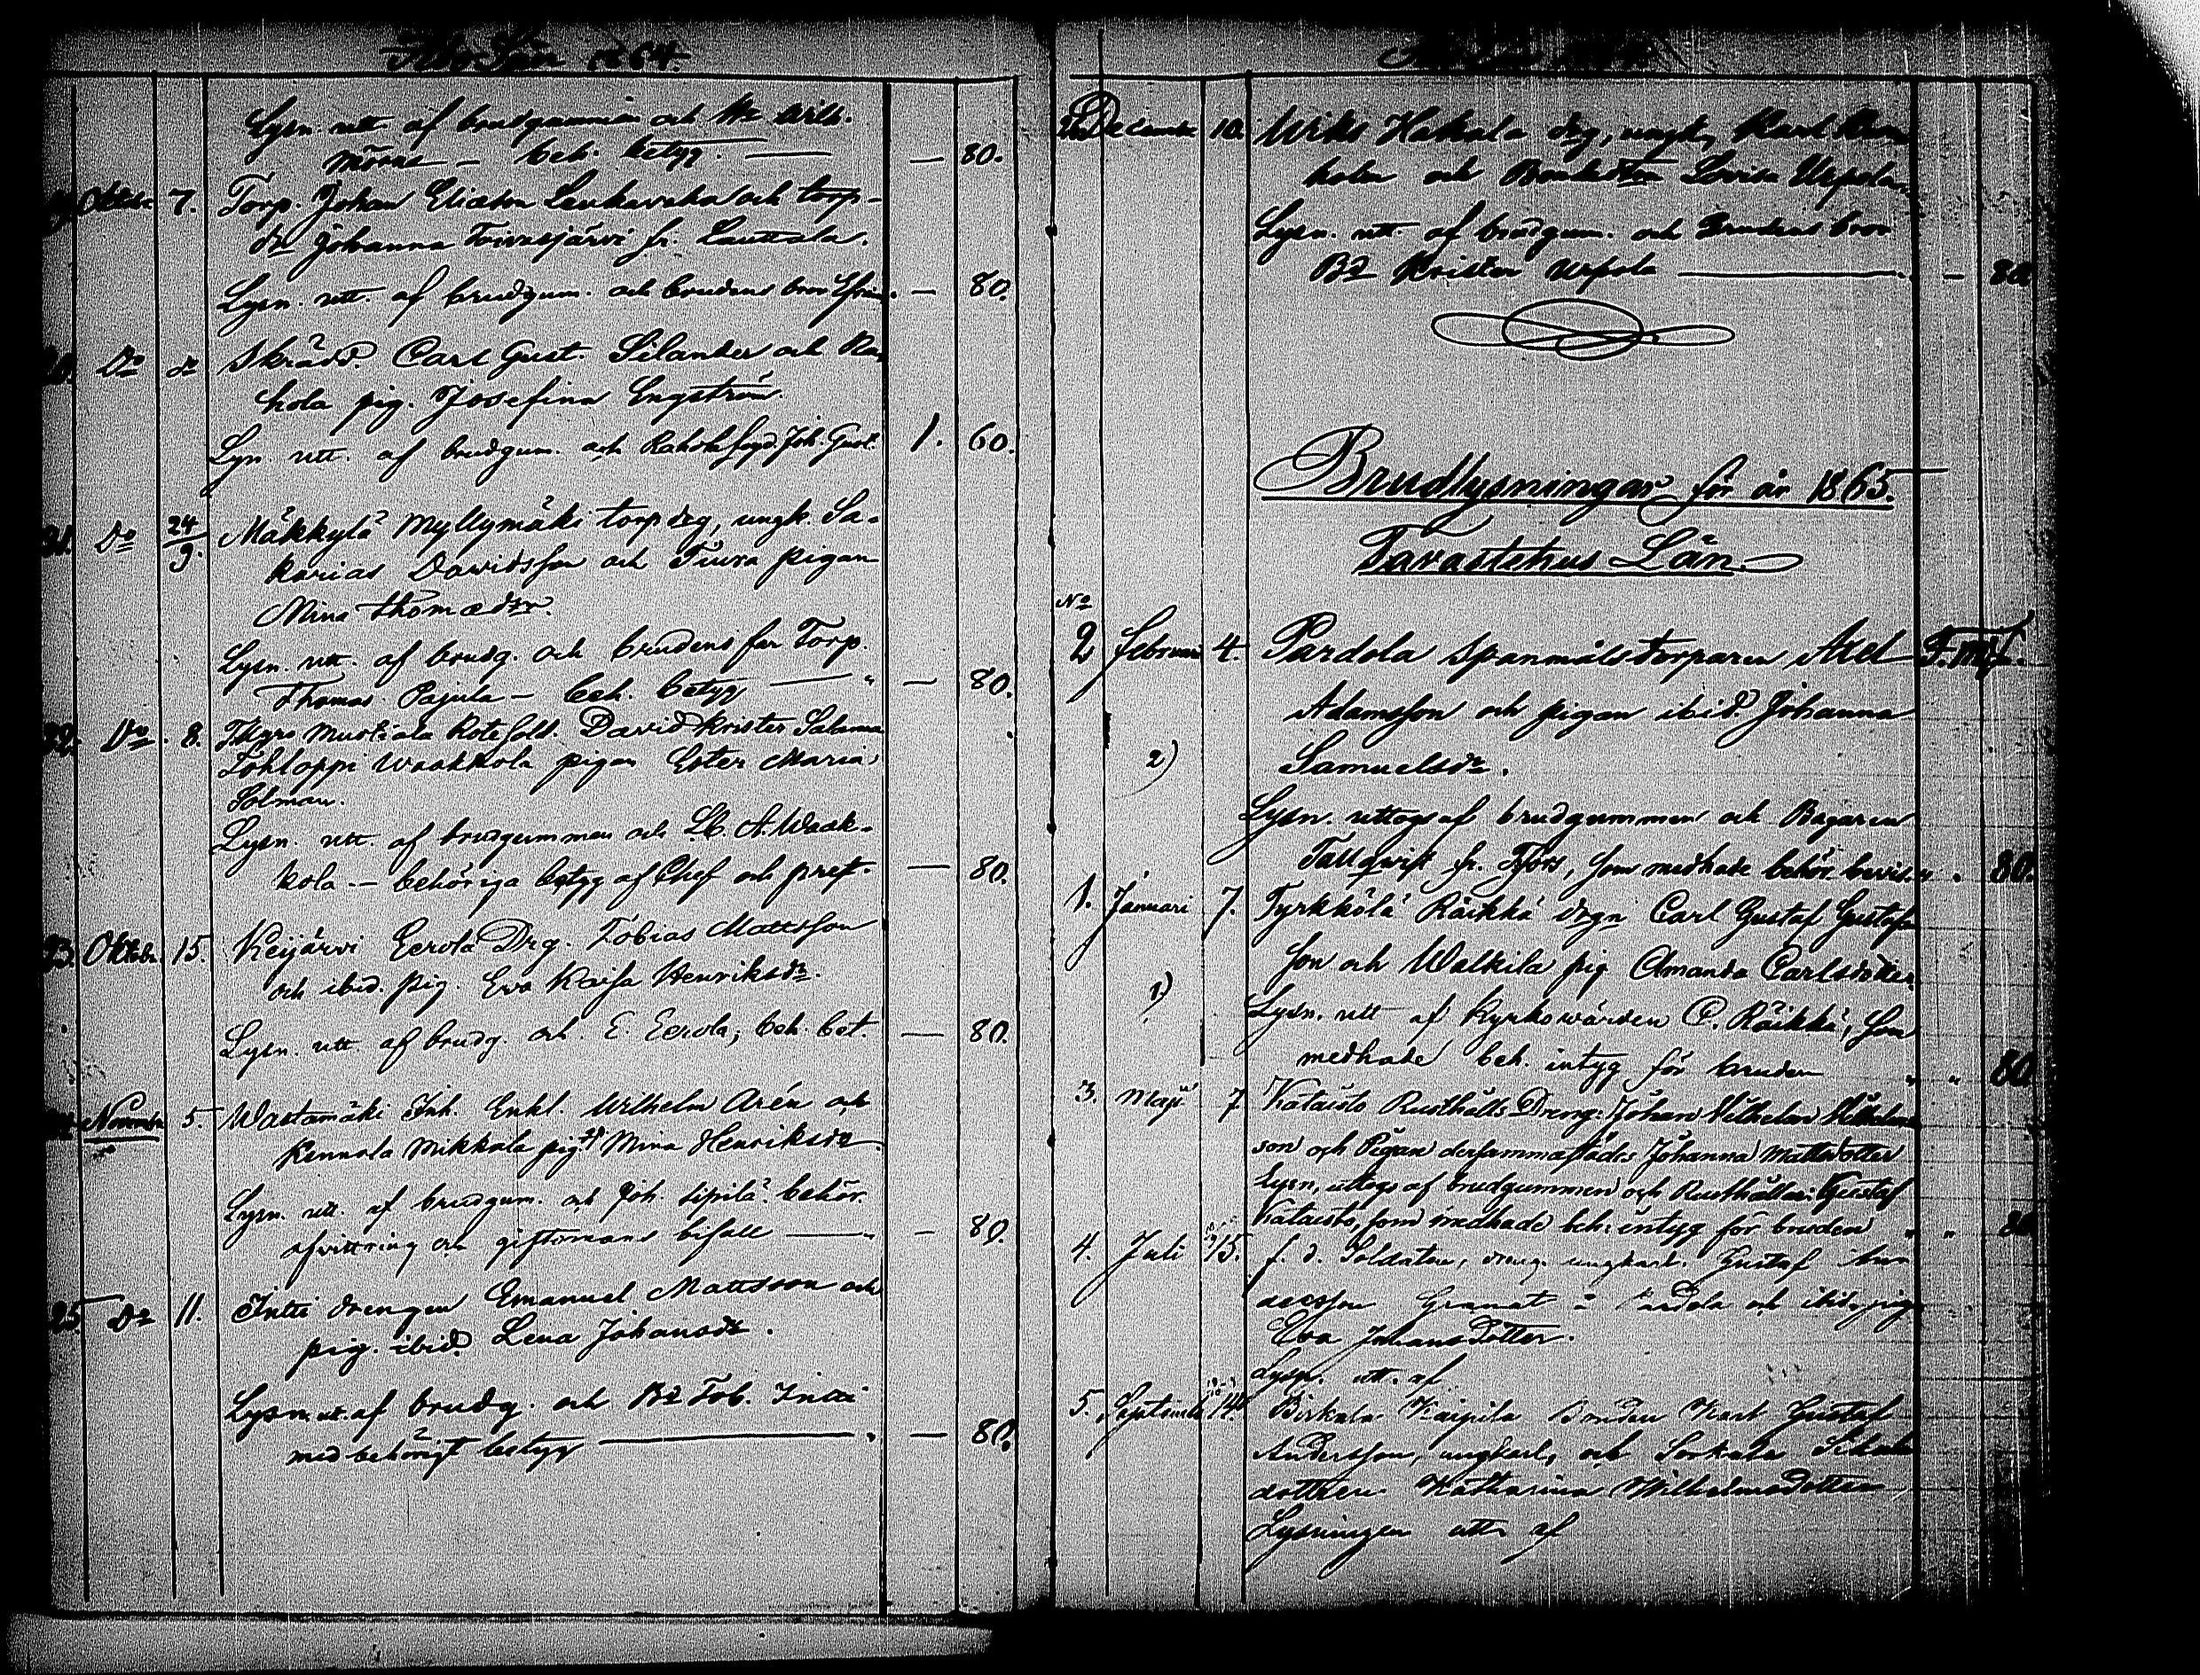 Åbo Län 1864.
Lysn. utt. af brudgummen och Wilh.
beh. betyg. — — 80.
Oktob. 7. Torp. Johan Eliasson Leukavaha och torp-
dr Johanna Toivasjärvi fr. Lauttala.
Lysn. utt. af brudgum. och brudens bror — 80.
Do do Skrädd. Carl Gust. Silander och Ra-
hola pig. Josefina Engström.
Lysn. utt. af brudgum. och Rahola fogd. Joh. Gust. 1. 60.
21. Do 24/9. Mäkkylä Myllymäki torp drg, ungk. Sa-
karias Davidsson och Tiura pigan
Mina Thomædtr.
Lysn. utt. af brudg. och brudens far Torp.
Thomas Pajula — beh. betyg — " — 80.
22. Do 8. Mustiala Rote Sold. David Krister Salama
Tohloppi Waakkola pigan Ester Maria
Solman.
Lysn. utt. af brudgummen och A. Waak-
kola — behöriga betyg af Chef och prest. — 80.
23. Oktob. 15. Keijärvi Eerola Drg. Tobias Mattsson
och ibid. pig. Eva Kaisa Henriksdr.
Lysn. utt. af brudg. och E. Eerola; beh. bet. — 80.
Novemb. 5. Wastamäki Inh. Enkl. Wilhelm Arén och
Kennola Mikkala pig. Mina Henriksdr
Lysn. utt. af brudgum. och Joh. Sipilä. behör.
afvittring och giftomans bifall — " — 80.
25. Do 11. Intti drengen Emanuel Mattsson och
pig. ibid. Lena Johansdr.
Lysn. utt. af brudg. och Bd Tob. Intti
med behörigt betyg — " — 80.
December 10. Wiks Hakala drg, ungk, Karl
och Bondedtrn Lovisa Uppola.
Lysn. utt. af brudgum. och Brudens bror
Bd Krister Uppola — — 80.
Brudlysningar för år 1865.
Tavastehus Län.
No
2 Februari 4. Pardola Spanmåls torparen Axel F. mk.
Adamsson och pigan ibid. Johanna
2) Samuelsdr.
Lysn. uttogs af brudgummen och Bagaren
Tallqvist fr. Tfors, som medhade behör. bevis . 80.
1. Januari 7. Tyrkkölä Räikkä drgn Carl Gustaf Gustafs-
son och Walkila pig Amanda Carlsdotter
1) Lysn. utt af Kyrkowärden C. Räikkä, som
medhade beh. intyg för bruden " " 80
3. Maji 7 Kataisto Rusthålls Dreng: Johan Wilhelm Wilhelms
son och Pigan dersammastädes Johanna Mattsdotter
Lysn. uttogs af brudgummen och Rusthållar: Gustaf
Kataisto, som medhade beh: intyg för bruden " " 80
4. Juli 15. f. d. Soldaten, dreng. ungkarl. Gustaf
Granat i Pardola och ibid. pig.
Eva Johansdotter.
Lysn. utt. af
5. September 14. Birkala Kaipila Bonden Karl Gustaf
Andersson, ungkarl, och Sorkala
dottren Katharina Wilhelmsdotter
Lysningen utt. af